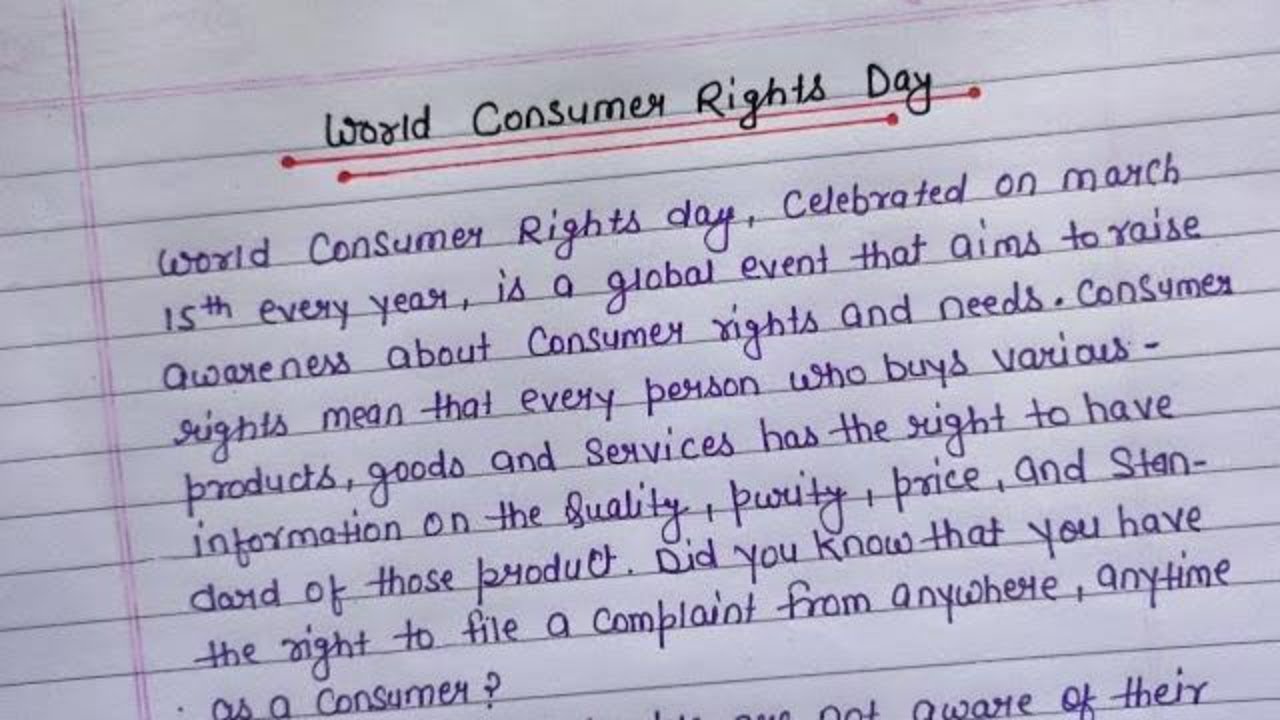 World Consumer Rights Day
World Consumer Rights day, Celebrated on march
15th every year, is a global event that aims to raise
awareness about Consumer rights and needs. Consumer
rights mean that every person who buys various -
products, goods and Services has the right to have
information on the Quality, purity, price, and Stan-
dard of those product. Did you know that you have
the right to file a complaint from anywhere, anytime
as a Consumer?
not aware of their